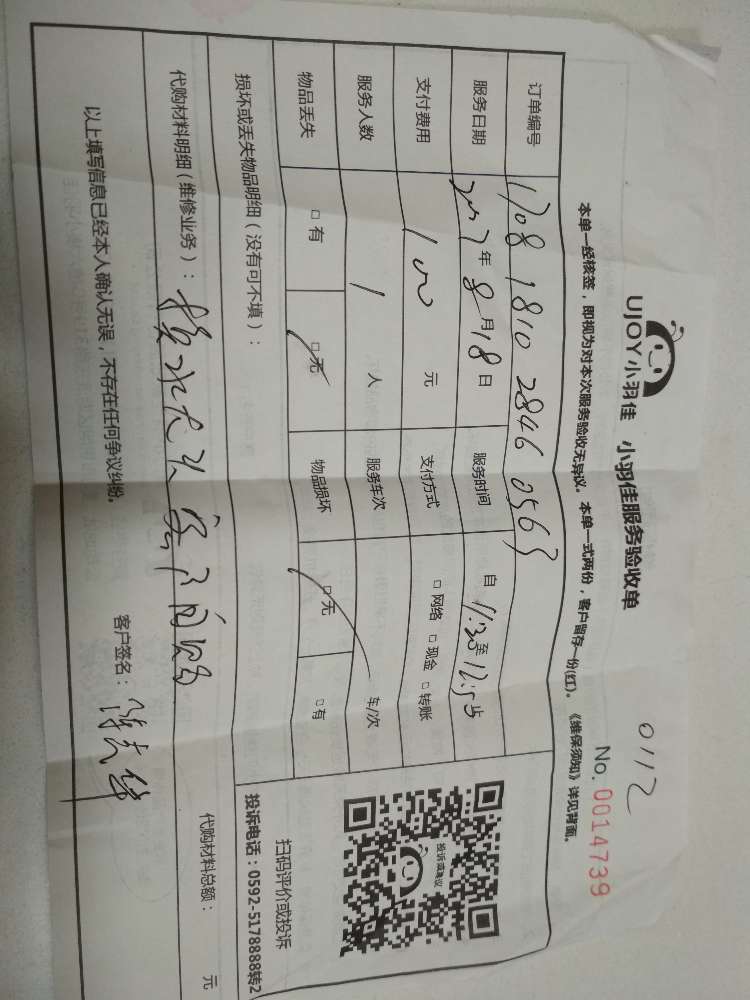 0112
UJOY小羽佳 小羽佳服务验收单
No. 0014739
本单一经核签，即视为对本次服务验收无异议。本单一式两份，客户留存一份(红)。《维保须知》详见背面。
订单编号 1708 1810 2846 0563
服务日期 2017年8月18日 服务时间 自11:30至12:5 止
支付费用 100 元 支付方式 □网络 □现金 □转账
服务人数 1 人 服务车次 车/次
物品丢失 □有 □无 物品损坏 □无 □有
投诉或建议
扫码评价或投诉
投诉电话：0592-5178888转2
损坏或丢失物品明细（没有可不填）：
代购材料明细（维修业务）：换水龙头 客户自购
代购材料总额： 元
以上填写信息已经本人确认无误，不存在任何争议纠纷。
客户签名：